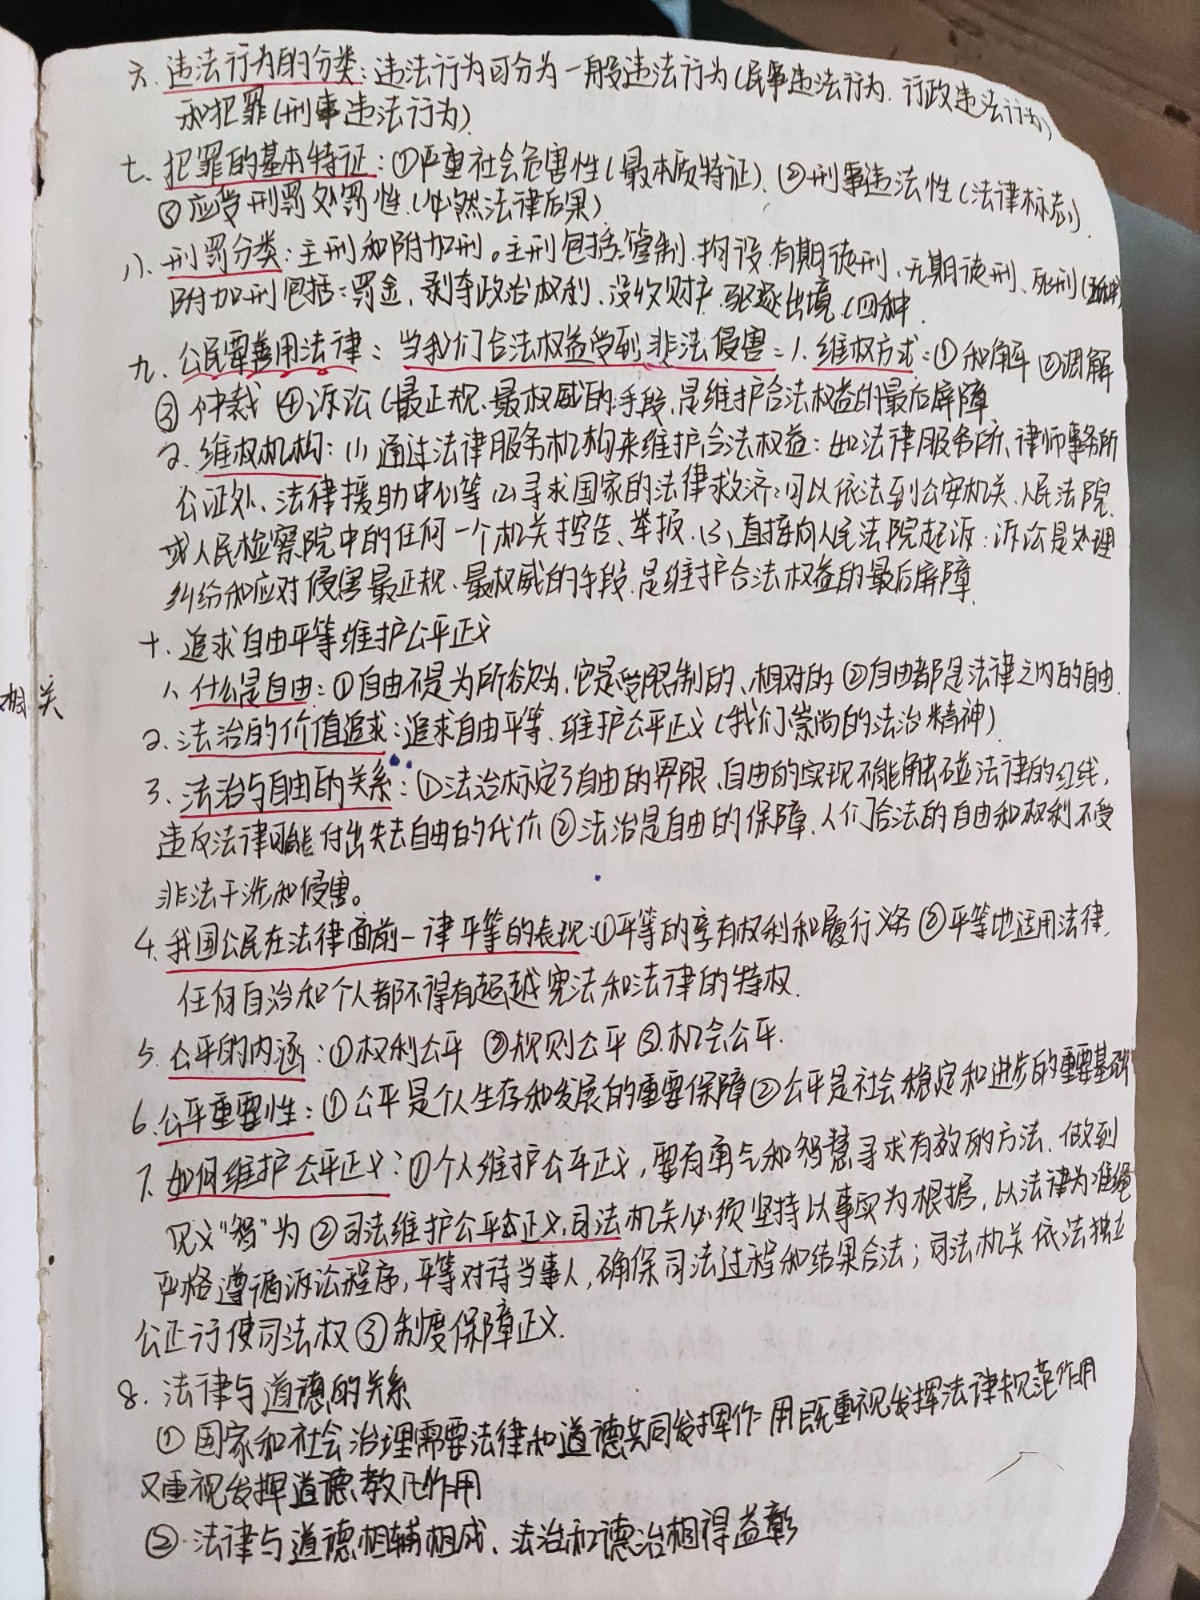 六、违法行为的分类:违法行为可分为一般违法行为(民事违法行为、行政违法行为)
和犯罪(刑事违法行为)
七、犯罪的基本特征:①严重社会危害性(最本质特征)、②刑事违法性(法律标志)
③应受刑罚处罚性.(必然法律后果)
八、刑罚分类:主刑和附加刑。主刑包括:管制、拘役、有期徒刑、无期徒刑、死刑(五种)
附加刑包括:罚金、剥夺政治权利、没收财产、驱逐出境(四种.
九、公民要善用法律:当我们合法权益受到非法侵害:1、维权方式:①和解②调解
③仲裁 ④诉讼(最正规、最权威的手段,是维护合法权益的最后屏障
2、维权机构:(1)通过法律服务机构来维护合法权益:如法律服务所、律师事务所
公证处、法律援助中心等(2)寻求国家的法律救济:可以依法到公安机关、人民法院、
或人民检察院中的任何一个机关控告、举报.(3)直接向人民法院起诉:诉讼是处理
纠纷和应对侵害最正规、最权威的手段,是维护合法权益的最后屏障.
十、追求自由平等维护公平正义
相关
1、什么是自由:①自由不是为所欲为,它是受限制的、相对的②自由都是法律之内的自由.
2、法治的价值追求:追求自由平等、维护公平正义(我们崇尚的法治精神)
3、法治与自由的关系:①法治标定了自由的界限,自由的实现不能触碰法律的红线,
违反法律可能付出失去自由的代价②法治是自由的保障,人们合法的自由和权利不受
非法干涉和侵害。
4、我国公民在法律面前一律平等的表现:①平等的享有权利和履行义务②平等地适用法律,
任何自治和个人都不得有超越宪法和法律的特权.
5、公平的内涵:①权利公平 ②规则公平 ③机会公平.
6、公平重要性:①公平是个人生存和发展的重要保障②公平是社会稳定和进步的重要基础
7、如何维护公平正义:①个人维护公平正义,要有勇气和智慧寻求有效的方法、做到
见义"智"为②司法维护公平正义,司法机关必须坚持以事实为根据,以法律为准绳
严格遵循诉讼程序,平等对待当事人,确保司法过程和结果合法;司法机关依法独立
公正行使司法权③制度保障正义.
8、法律与道德的关系
①国家和社会治理需要法律和道德共同发挥作用既重视发挥法律规范作用
又重视发挥道德教化作用
②法律与道德相辅相成、法治和德治相得益彰